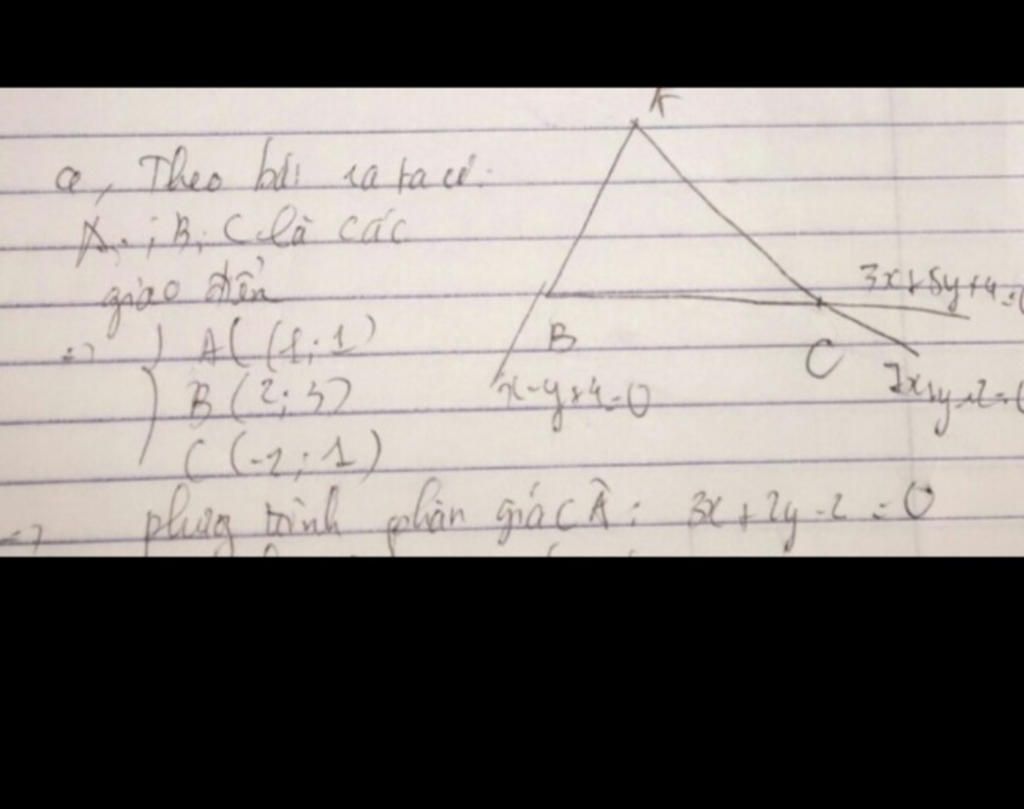 a, Theo bài ra ta có:
A; B; C là các
giao điển
=> A((1; 1)
B(2; 3)
C(-2; 1)
=> phương trình phân giác Â: 3x + 2y - 2 = 0
A
B
C
3x + 5y + 4 =
x - y + 4 = 0